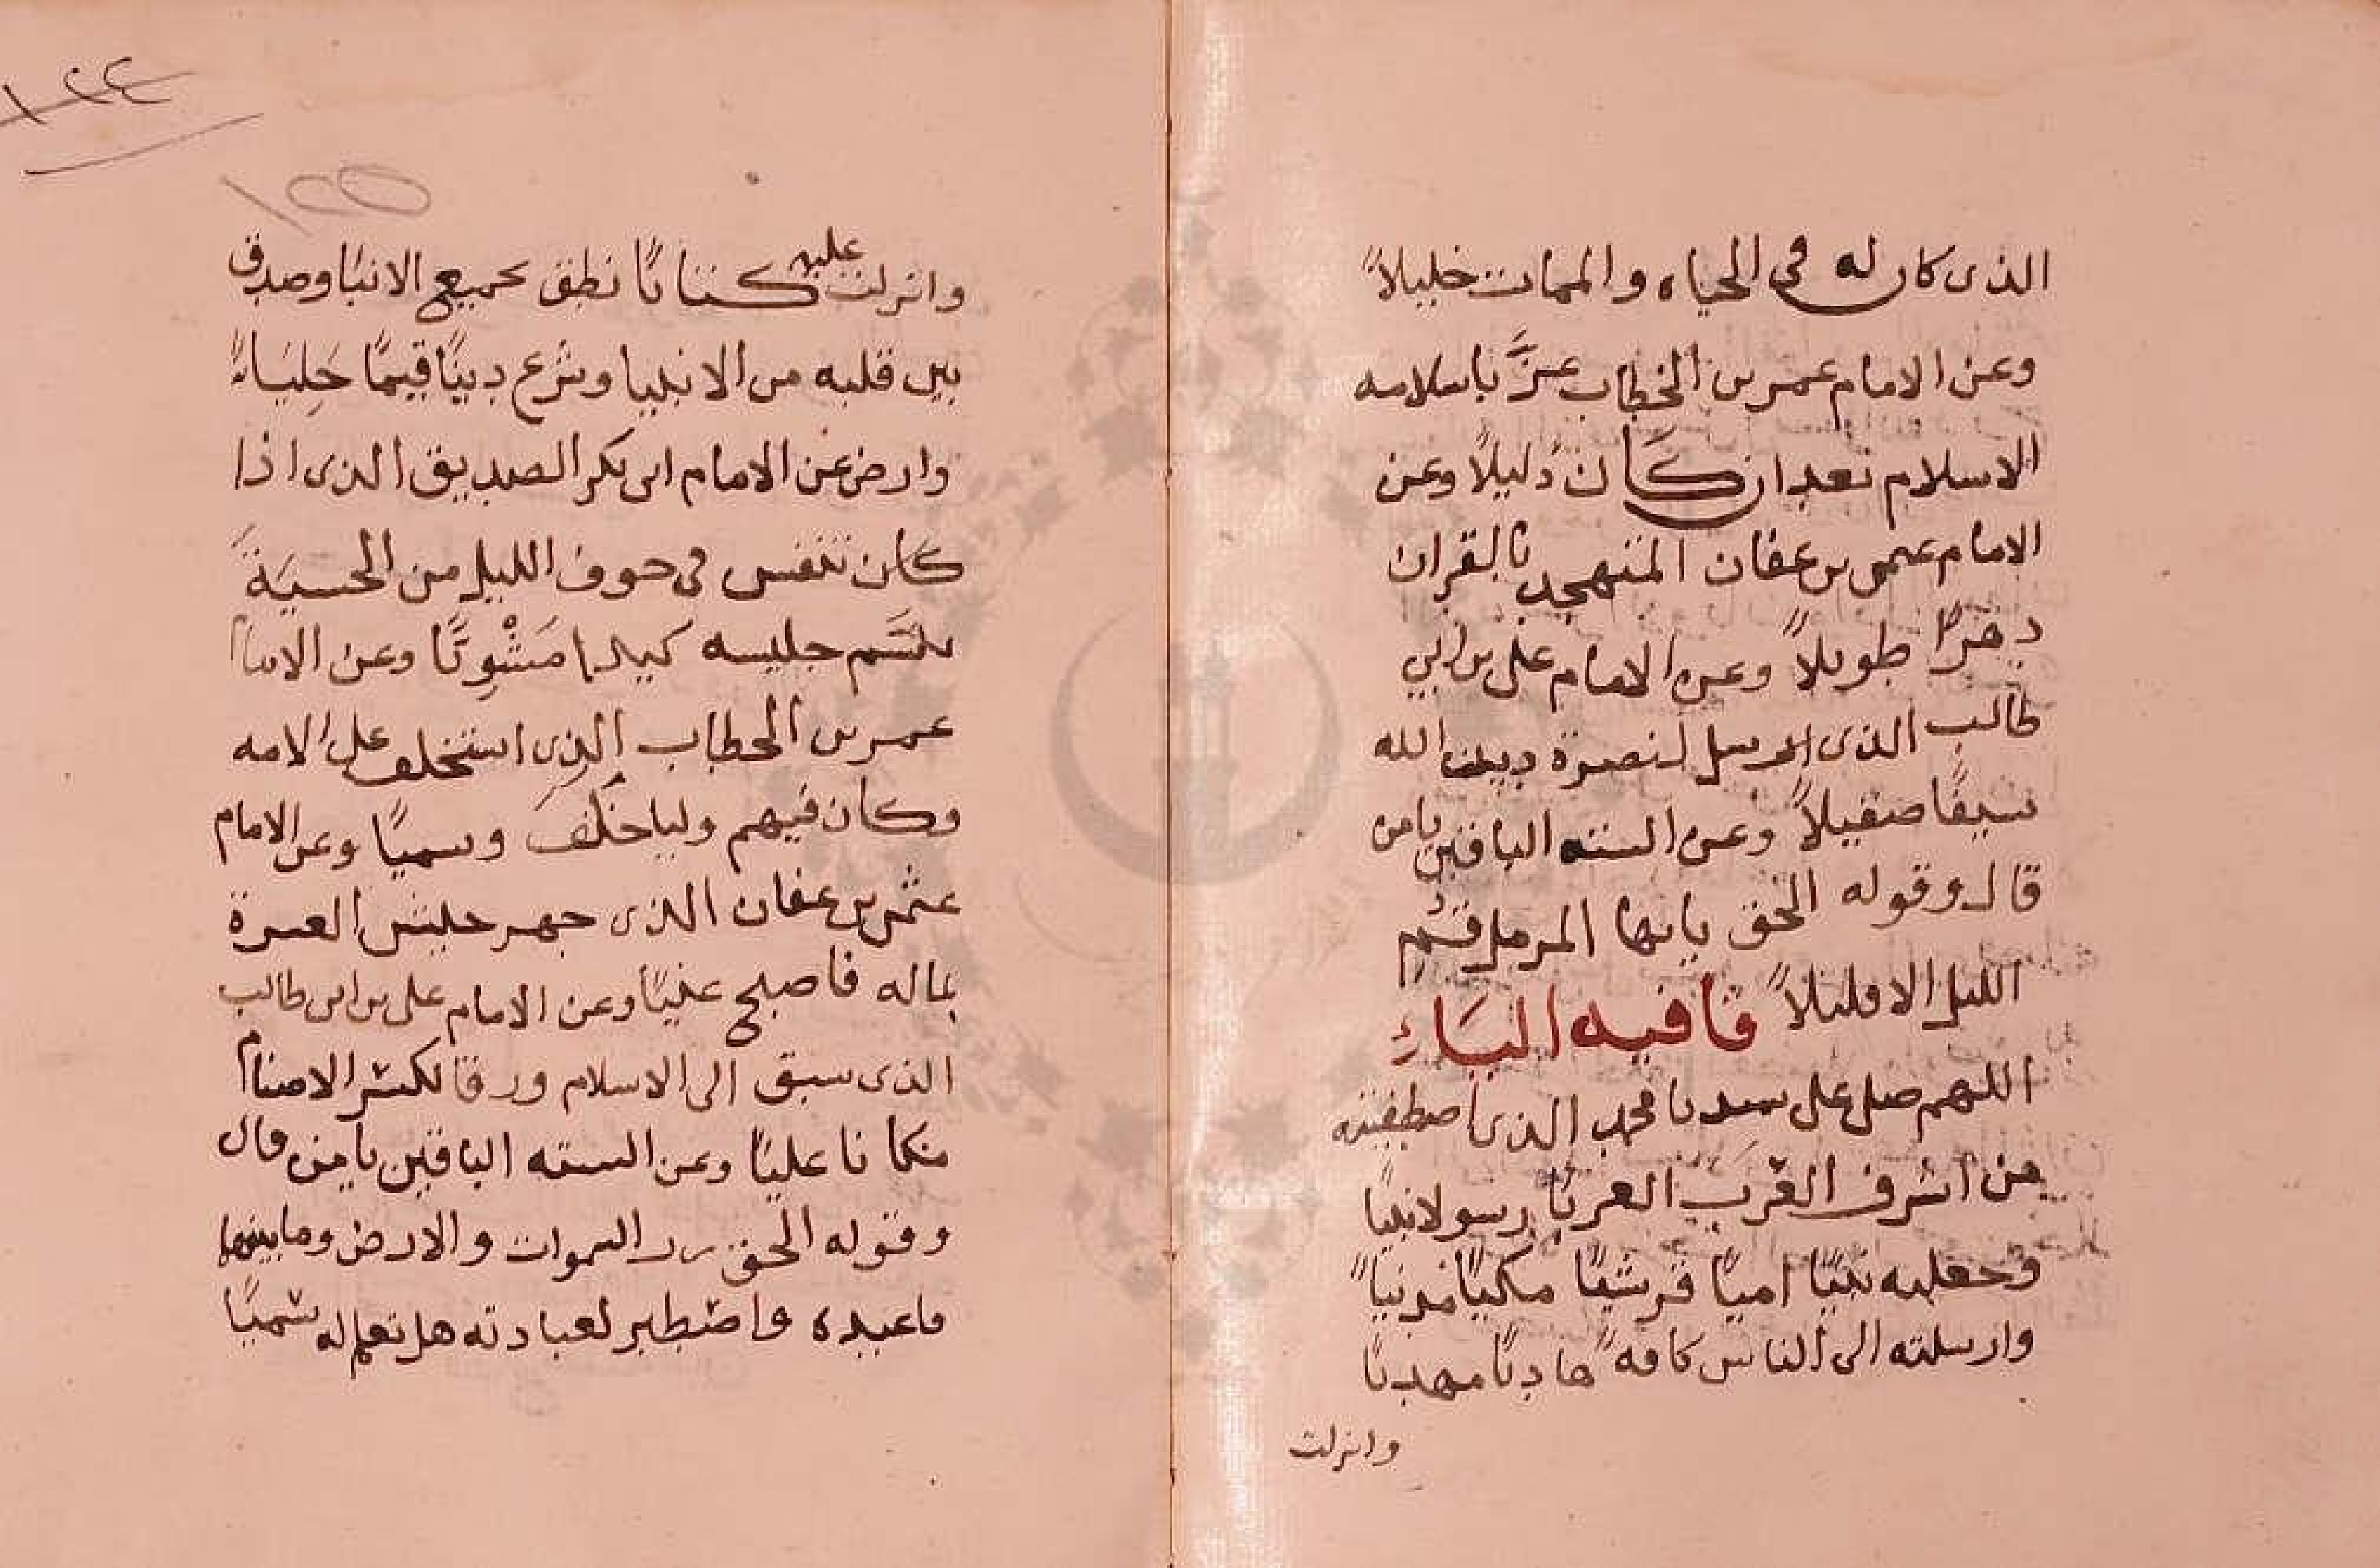 الذى كان له فى الحياه والممات خليلاً
وعن الامام عمر بن الخطاب عزَّ باسلامه
الاسلام بعد ان كَان ذليلاً وعن
الامام عثمن بن عفان المتهجد بالقران
دهرًا طويلاً وعن الامام على بن ابي
طالب الذى ارسل لنصرة دين الله
سيفًا صقيلاً وعن السته الباقين يامن
قال وقوله الحق يايها المزمل قُمِ
الليل الا قليلاً قافيه اليَاءِ
اللهم صل على سيدنا محمد الذى اصطفيته
من اشرف العَرَب العربا رسولا نبيًا
وجعلته اميًا قرشيًا مكيًا مدنيًا
وارسلته الى الناس كافه هاديًا مهديًا
وانزلت
١٢٤
١٢٥
وانزلت عليه كتابًا نطق بجميع الانبا وصدق
بين قلبه من الانبيا وشرع دينًا قيمًا جَلِيَا
وارض عن الامام ابى بكر الصديق الذى اذا
كان تنفس فى جوف الليل من الخشيَةَ
جليسه كبدا مَشْوِيًّا وعن الامام
عمر بن الخطاب الذِى استخلف على الامه
وكان فيهم وليا خَلَفَ وسميًا وعن الامام
عثمن بن عفان الذى جهز جيش العسرة
بماله فاصبح عليًا وعن الامام على بن ابى طالب
الذى سبق الى الاسلام ورقا لكسر الاصنام
مكانا عليًا وعن السته الباقين يامن قال
وقوله الحق رب السموات والارض وما بينهما
فاعبده واصطبر لعبادته هل تعلم له سميًا